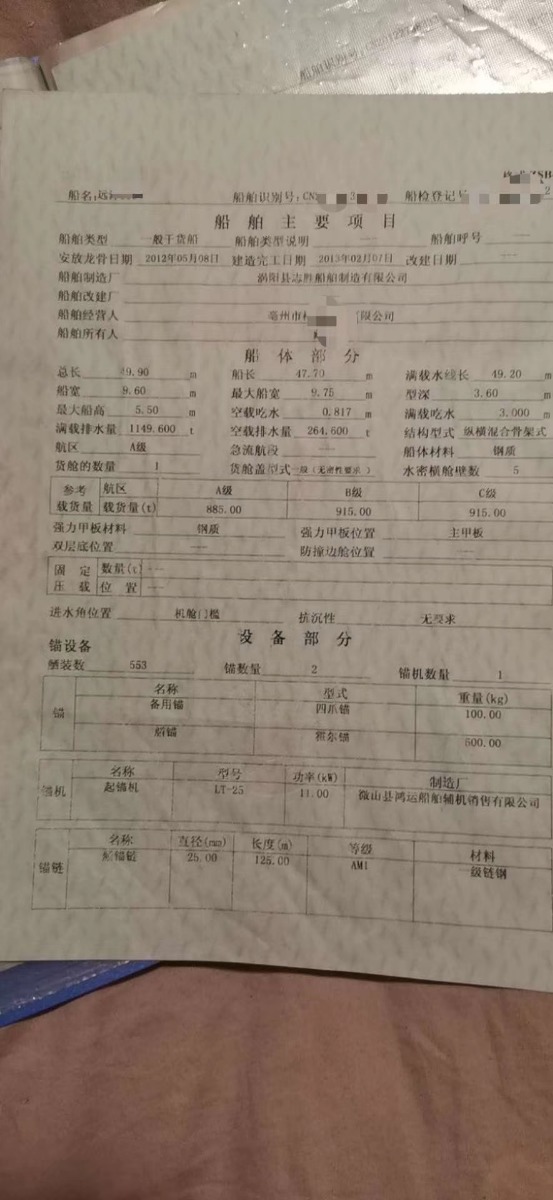 船舶识别号:CN20122
格式 ZSB
船名:远 船舶识别号:CN2 3 船检登记号 2
船舶主要项目
船舶类型 一般干货船 船舶类型说明 —— 船舶呼号 ——
安放龙骨日期 2012年05月08日 建造完工日期 2013年02月07日 改建日期 ——
船舶制造厂 涡阳县志胜船舶制造有限公司
船舶改建厂
船舶经营人 亳州市 限公司
船舶所有人
船体部分
总长 49.90 m 船长 47.70 m 满载水线长 49.20 m
船宽 9.60 m 最大船宽 9.75 m 型深 3.60 m
最大船高 5.50 m 空载吃水 0.817 m 满载吃水 3.000 m
满载排水量 1149.600 t 空载排水量 264.600 t 结构型式 纵横混合骨架式
航区 A级 急流航段 —— 船体材料 钢质
货舱的数量 1 货舱盖型式 一般(无密性要求) 水密横舱壁数 5
参考 航区 A级 B级 C级
载货量 载货量(t) 885.00 915.00 915.00
强力甲板材料 钢质 强力甲板位置 主甲板
双层底位置 —— 防撞边舱位置 ——
固定 数量(t) ——
压载 位置 ——
进水角位置 机舱门槛 抗沉性 无要求
设备部分
锚设备
舾装数 553 锚数量 2 锚机数量 1
锚 名称 型式 重量(kg)
备用锚 四爪锚 100.00
艏锚 霍尔锚 500.00
锚机 名称 型号 功率(kW) 制造厂
起锚机 LT-25 11.00 微山县鸿运船舶辅机销售有限公司
锚链 名称 直径(mm) 长度(m) 等级 材料
艏锚链 25.00 125.00 AM1 级链钢